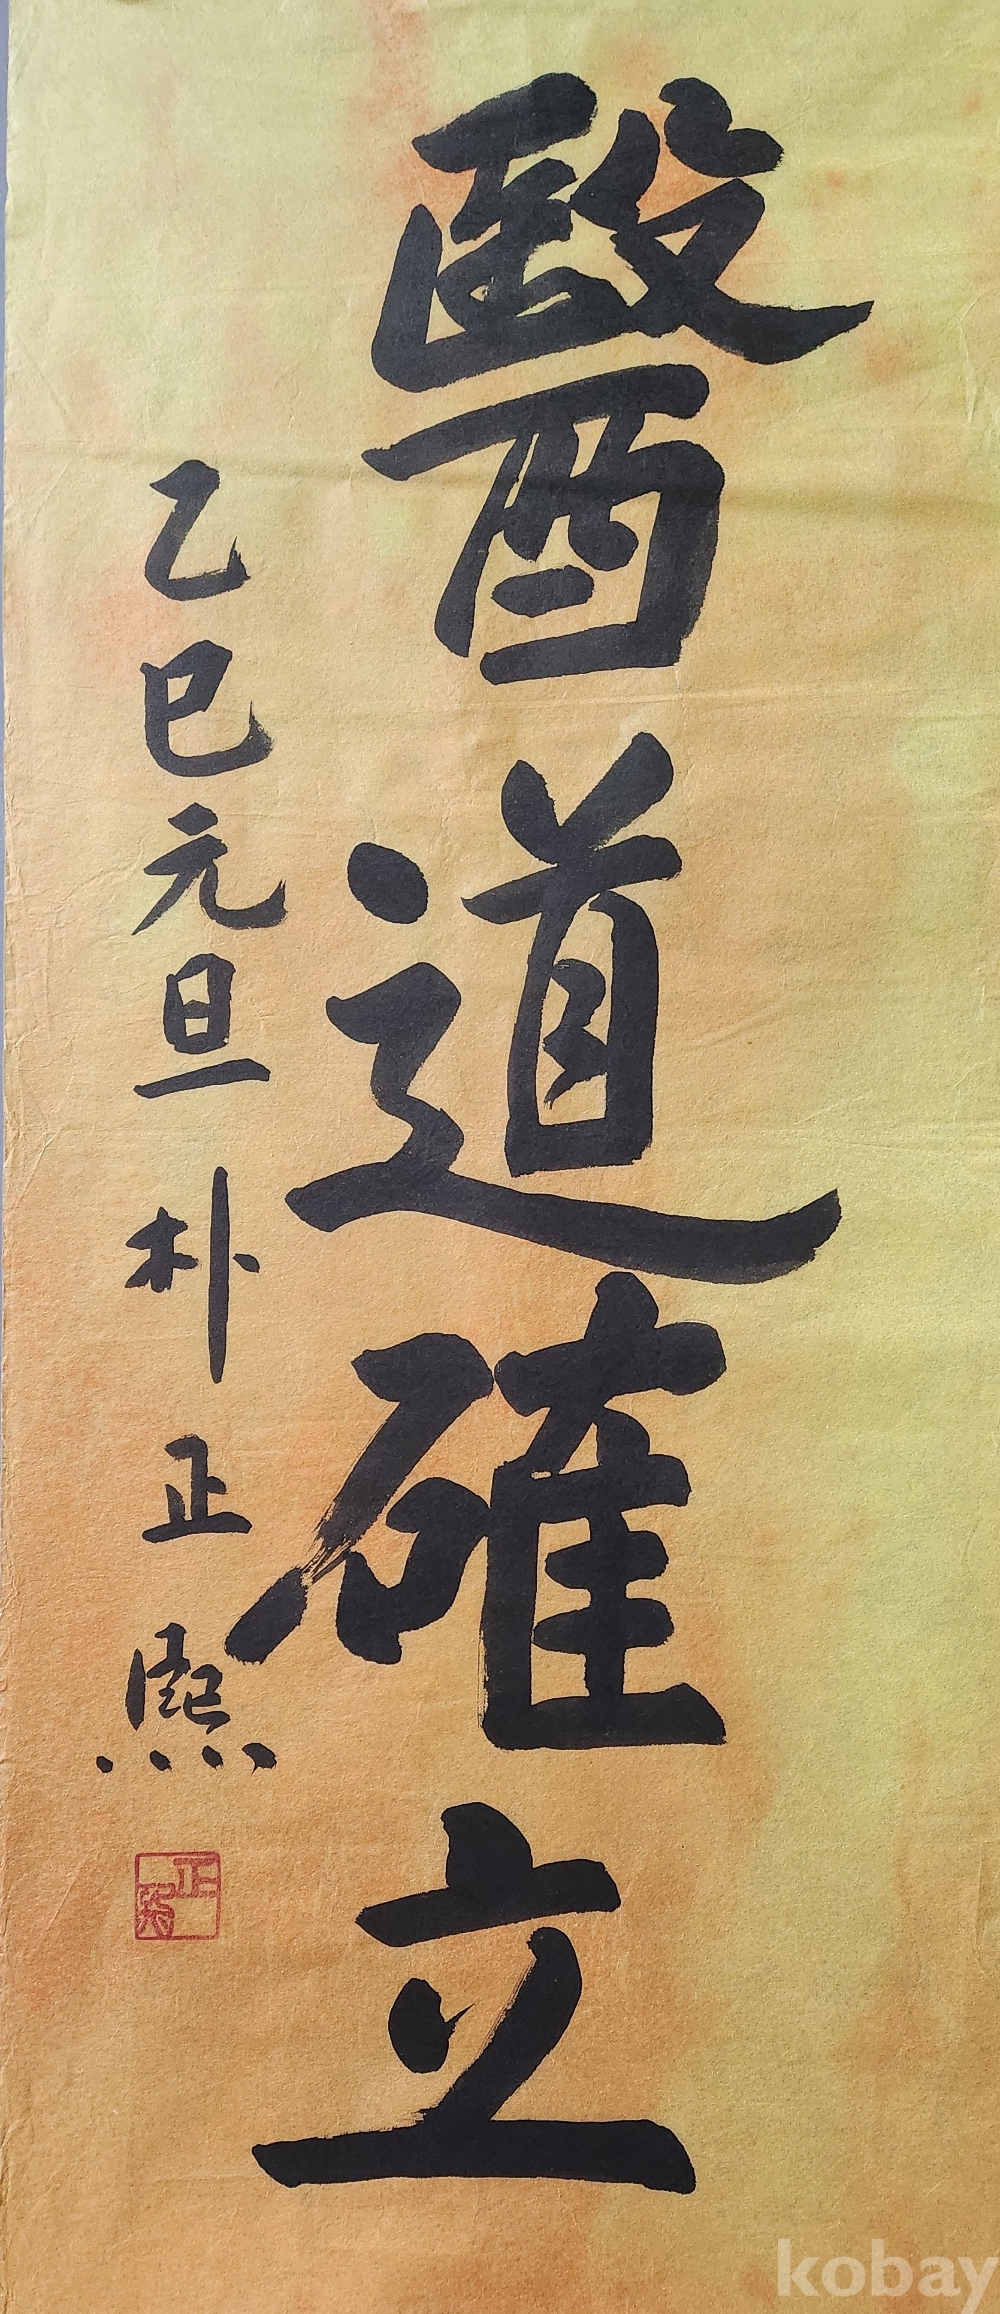 醫道確立
乙巳元旦 朴正熙
正熙
kobay